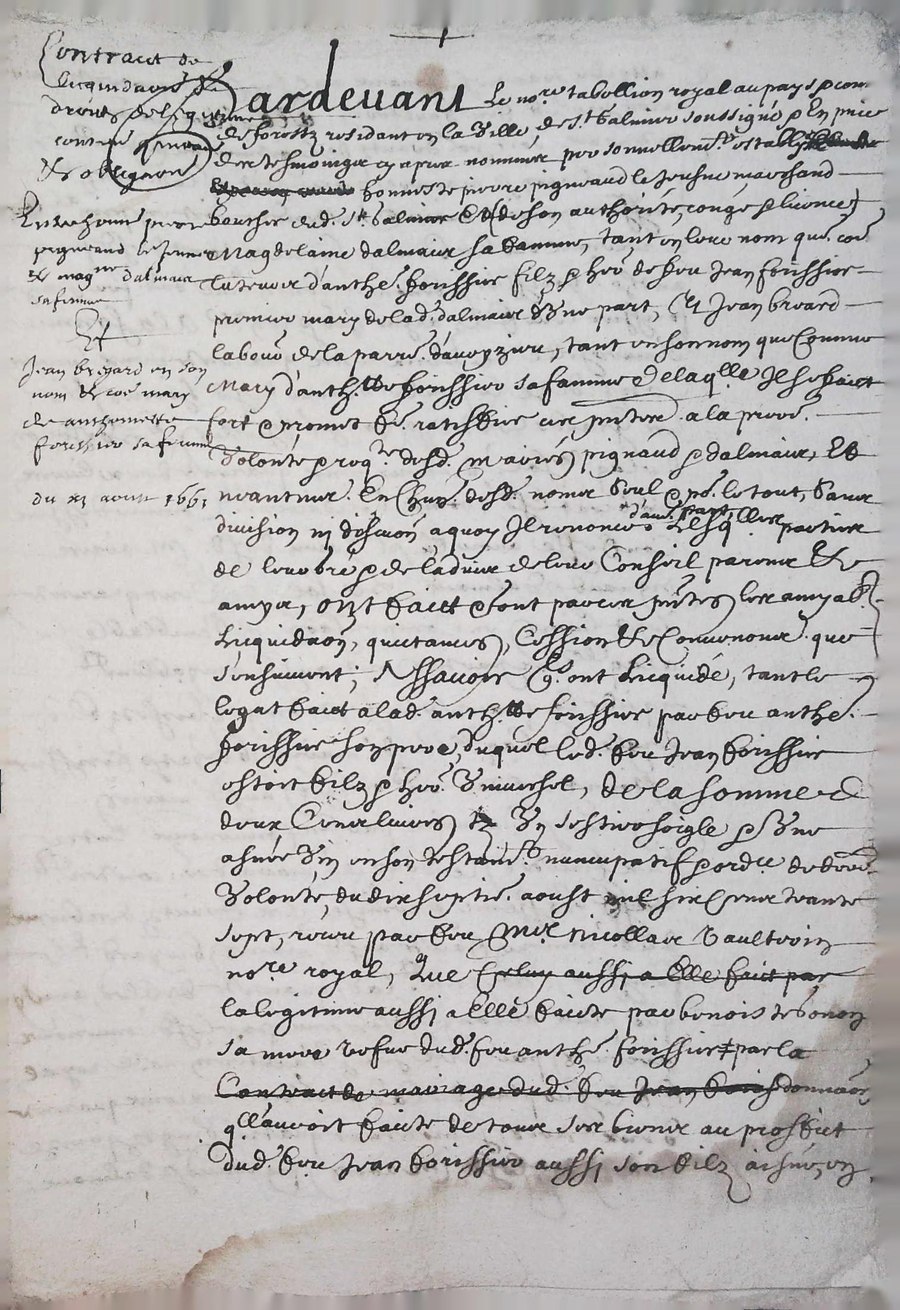 Contract de
licquidaõn de
droits de legitime
contenant quictance
& obligaõn
Entre honnê pierre
pigneaud le Jeune
& magne dalmaix
sa femme
Et
Jean beyard en son
nom & cõe mary
de anthoinette
forissier sa femme
du aoust 1661
Pardevant Le nore taboллion royal au pays & com
de forestz residant en la Ville de St Galmier soussigné & En pñce
des tesmoingz cy apres nommés personnellemt estably
honneste pierre pigneaud le Jeusne marchand
dud. St Galmier Et (de son authorité, congé & licence)
Magdelaine dalmaix sa famme, tant en leur nom que cõe
tuteur d'anthe. forissier filz & her. de feu Jean forissier
premier mary de lad. dalmaix d'Une part, Et Jean breard
labour de la parre. d'aveyzieu, tant en son nom que Comme
Mary d'anth.tte forissier sa famme de laqlle Il se faict
fort & promet fe. ratiffier ces pntes. a la prere.
Volonté & req.te desd. mariés pignaud & dalmaix, Et
neantmoĩs. En Chũn. desd. noms Seul & po. le tout, sans
division ni discuõn a quoy Ilz renoncent d'aue. part Lesq.lles parties
de leur gré & de l'advis de leur Conseil parens &
amys, ont faict & font par ces pntes les amyab.
Licquidaõn, quictances, Cession & Convenons. que
s'ensuivent; Assavoir q̃. ont Licquidé, tant le
legat faict a lad. anth.tte forissier par feu anthe.
forissier son pere, duquel led. feu Jean forissier
estoit filz & her. Universel, de la somme de
deux Cens livres Un sestier soigle & d'Une
asnée Vin en son testamt. nuncupatif & ordce de dere.
Volonté, du dix septie. aoust mil six Cens trante
sept, receu par feu Me Nicollas Vaultrin
nore royal, Que Celuy aussi a Elle faict par
la legitime aussi a Elle faicte par benoiste bonon
sa mere vefve dud. feu anthe. forissier par la
Contract de mariage dud. feu Jean foris donnaõn
q.ll'avoit faicte de tous ses biens au proffict
dud. feu Jean forissier aussi son filz aisné, en